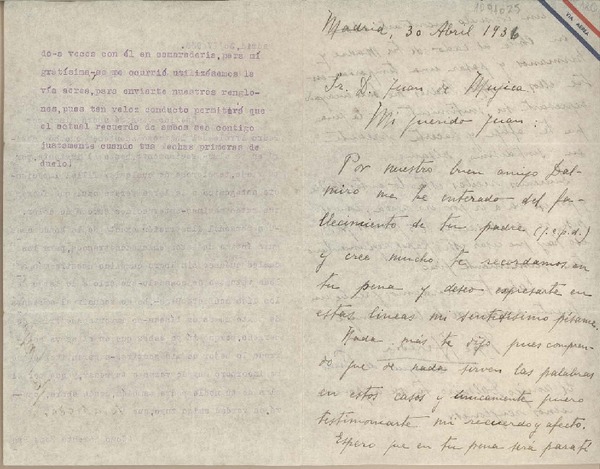 do-a veces con él en comaradería, para mí
gratísima-se me ocurrió utilizásemos la
vía aérea, para enviarte nuestros renglo-
nes, pues tan veloz conducto permitirá que
el actual recuerdo de ambos sea contigo
justamente cuando tus fechas primeras de
duelo.
VIA AEREA
Madrid, 30 Abril 1936
Sr. D. Juan de Mujica
Mi querido Juan:
Por nuestro buen amigo Dal-
miro me he enterado del fa-
llecimiento de tu padre (q.e.p.d.)
y cree mucho te recordamos en
tu pena y deseo expresarte en
estas líneas mi sentidísimo pésame.
Nada más te digo pues compren-
do que de nada sirven las palabras
en estos casos y únicamente quiero
testimoniarte mi recuerdo y afecto.
Espero que en tu pena será para ti